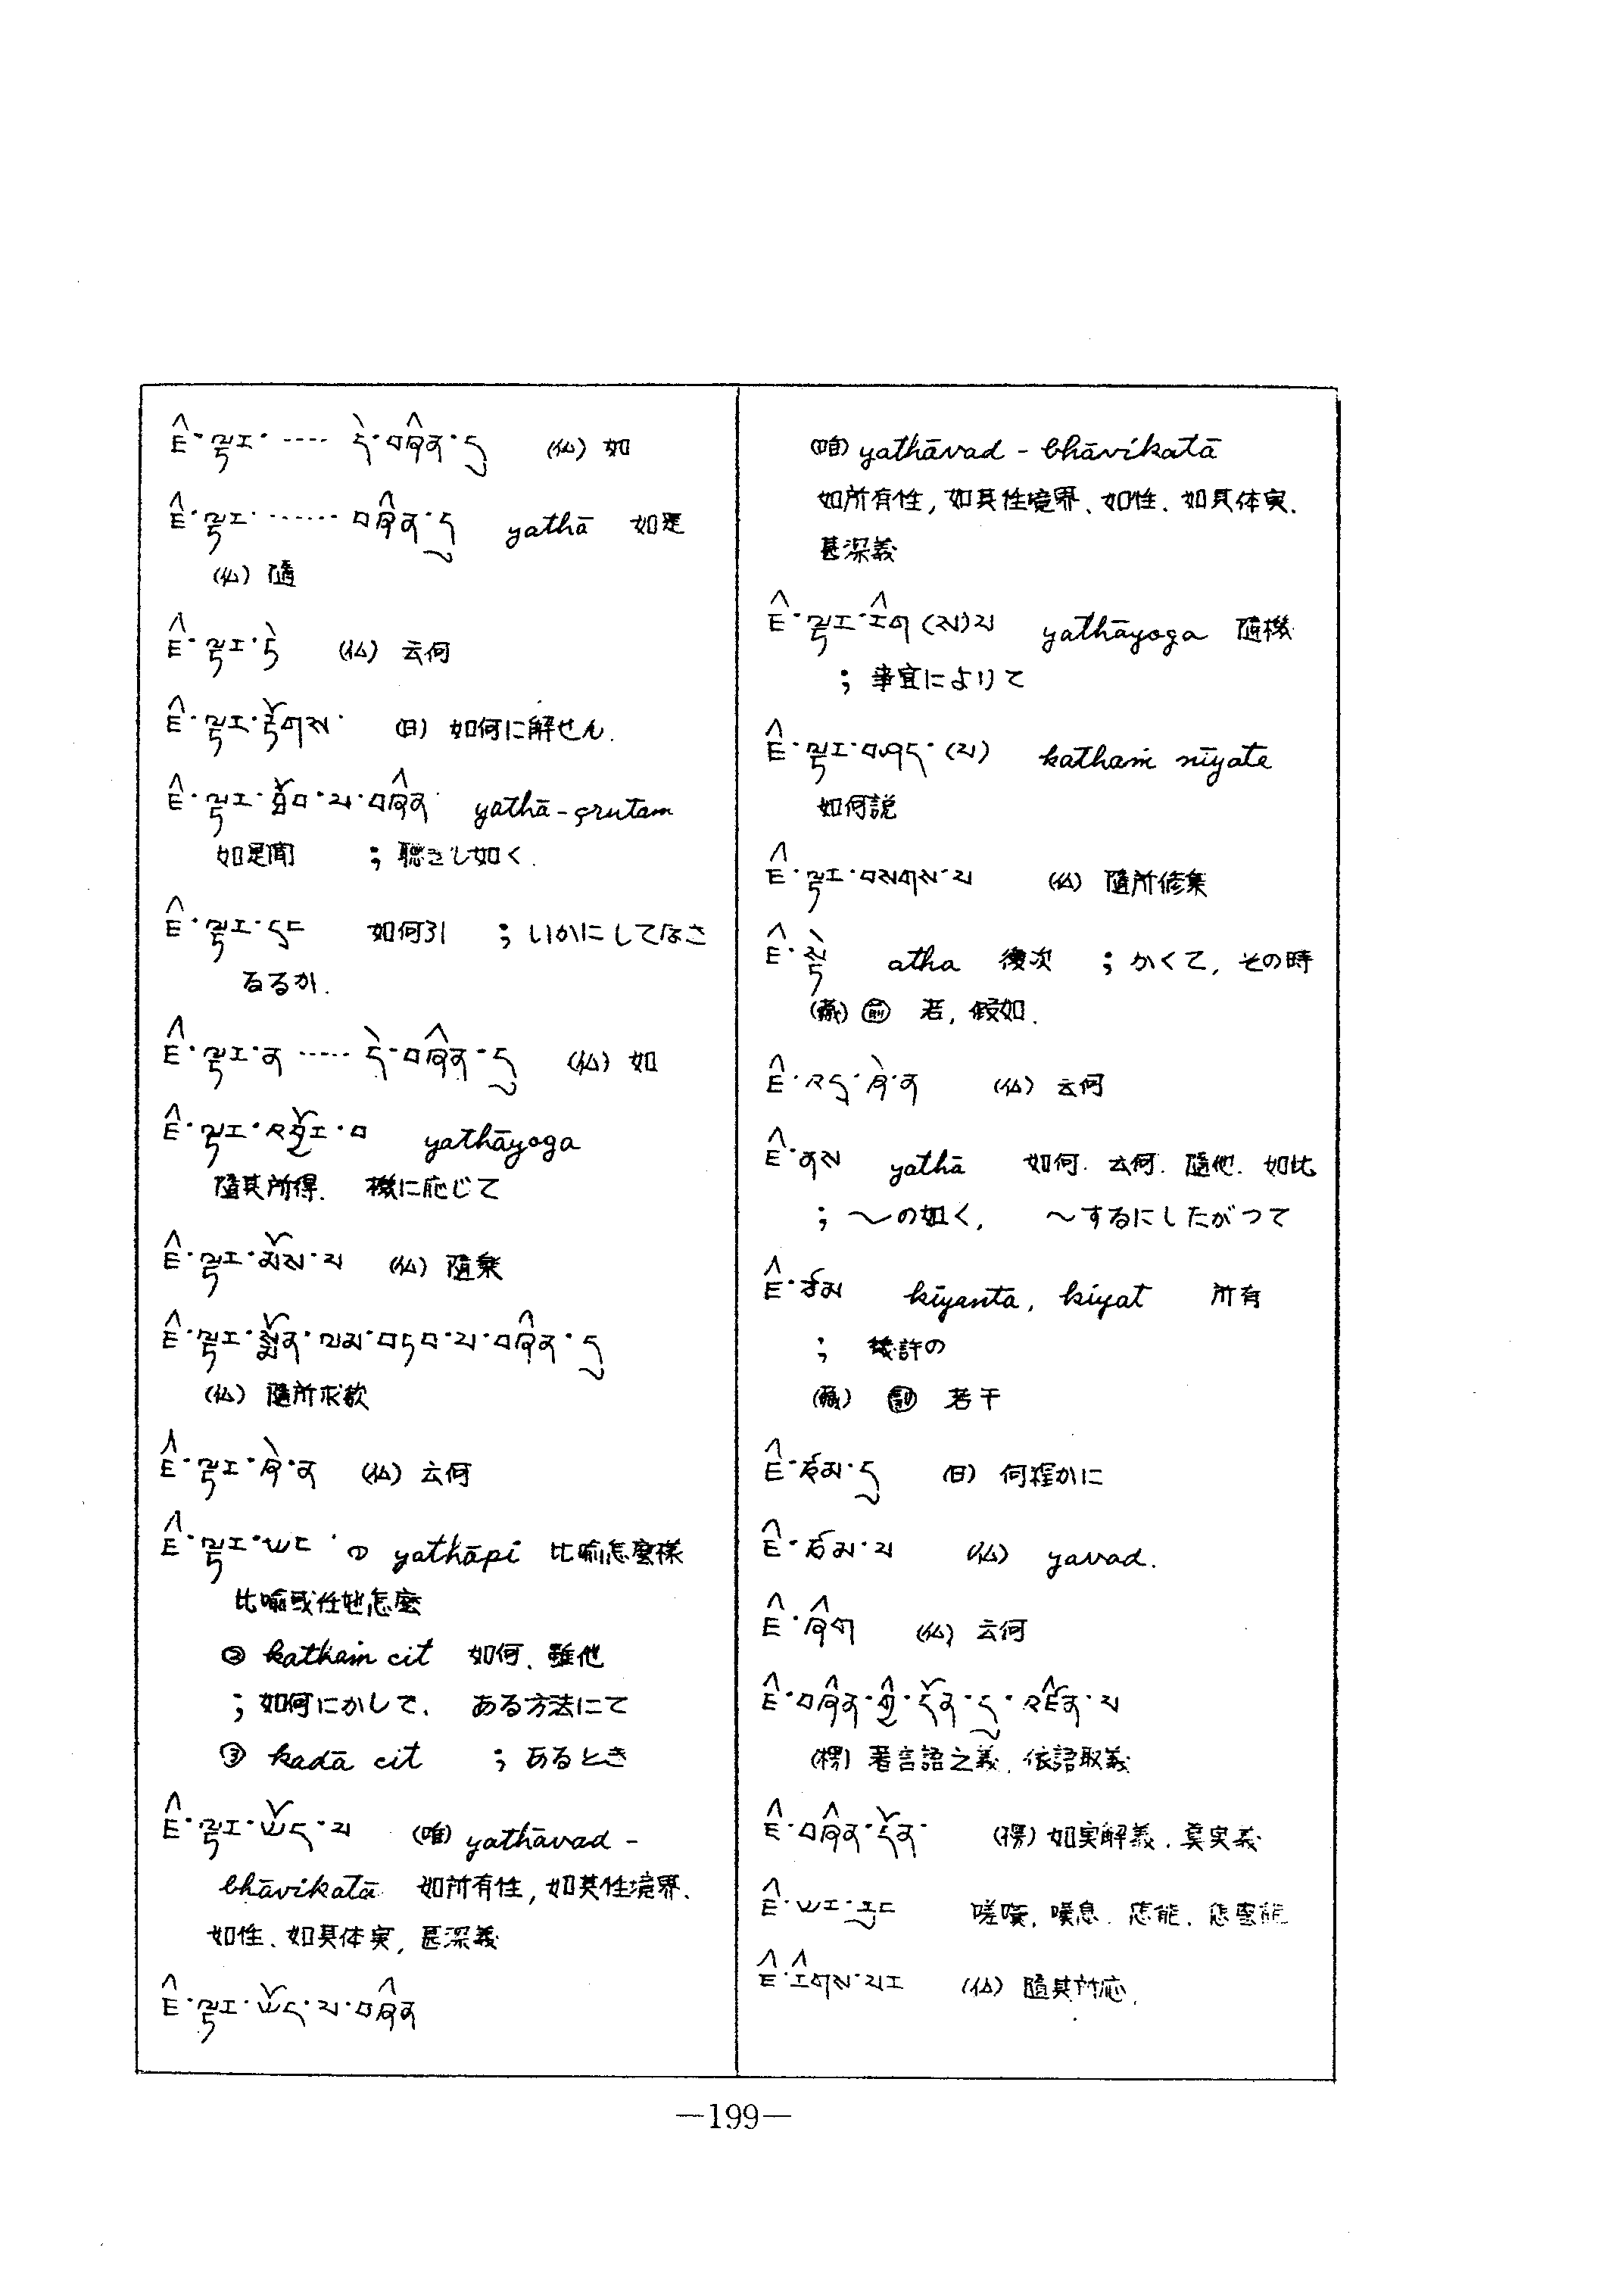 ཇི་ལྟར་ ····· དེ་བཞིན་དུ (仏) 如
ཇི་ལྟར་ ······ བཞིན་དུ yathā 如是
(仏) 隨
ཇི་ལྟར་ཏེ (仏) 云何
ཇི་ལྟར་རྟོགས་ (日) 如何に解せん.
ཇི་ལྟར་ཐོབ་པ་བཞིན yathā-çrutam
如是聞 ; 聴きし如く.
ཇི་ལྟར་དྲང 如何引 ; いかにしてなさ
るるか.
ཇི་ལྟར་ན ····· དེ་བཞིན་དུ (仏) 如
ཇི་ལྟར་འབྱོར་བ yathāyoga
隨其所得. 機に応じて
ཇི་ལྟར་མོས་པ (仏) 隨樂
ཇི་ལྟར་སྨོན་ལམ་བཏབ་པ་བཞིན་དུ
(仏) 隨所求欲
ཇི་ལྟར་ཞེ་ན (仏) 云何
ཇི་ལྟར་ཡང་ ① yathāpi 比喻怎麼樣
比喻或任他怎麼
② kathaṁ cit 如何、雖他
; 如何にかして、 ある方法にて
③ kadā cit ; あるとき
ཇི་ལྟར་ཡོད་པ (唯) yathāvad-
bhāvikatā 如所有性, 如其性境界、
如性、如具体実, 甚深義
ཇི་ལྟར་ཡོད་པ་བཞིན
(唯) yathāvad-bhāvikatā
如所有性, 如其性境界、如性. 如具体実.
甚深義
ཇི་ལྟར་རིག(ས)པ yathāyoga 隨機
; 事宜によりて
ཇི་ལྟར་བཤད་(པ) kathaṁ nīyate
如何説
ཇི་ལྟར་བསགས་པ (仏) 隨所修集
ཇི་སྟེ atha 復次 ; かくて, その時
(蔵) 副 若, 假如.
ཇི་འདྲ་ཞེ་ན (仏) 云何
ཇི་ནས yathā 如何. 云何. 隨他. 如比
; ～の如く, ～するにしたがつて
ཇི་ཙམ kiyanta, kiyat 所有
; 幾許の
(蔵) 副 若干
ཇི་ཙམ་དུ (日) 何程かに
ཇི་ཙམ་པ (仏) yavad.
ཇི་ཞིག (仏) 云何
ཇི་བཞིན་གྱི་དོན་དུ་འཛིན་པ
(楞) 著言語之義. 依語取義
ཇི་བཞིན་དོན་ (楞) 如実解義. 真実義
ཇི་ཡར་རུང
ཇི་རིགས་པར (仏) 隨其所応.
—199—